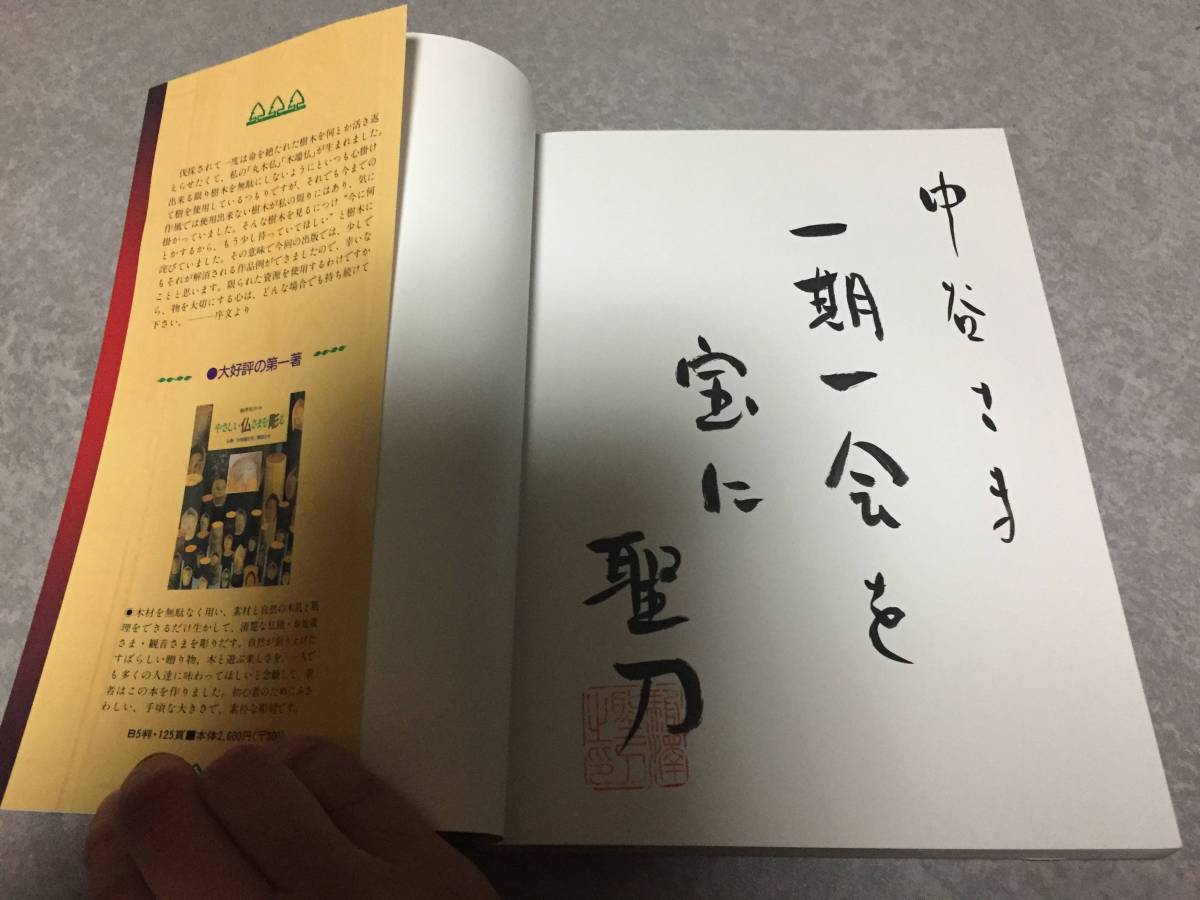 伐採されて一度は命を絶たれた樹木を何とか活き返
えらせたくて、私の「丸木仏」「木端仏」が生まれました。
出来る限り樹木を無駄にしないようにといつも心掛け
て樹を使用しているつもりですが、それでも今までの
作風では使用出来ない樹木が私の周りにはあり、気に
掛かっていました。そんな樹木を見るにつけ“今に何
とかするから、もう少し待っていてほしい”と樹木に
詫びていました。その意味で今回の出版では、少しで
もそれが解消される作品例ができましたので、幸いな
ことと思います。限られた資源を使用するわけですか
ら、物を大切にする心は、どんな場合でも持ち続けて
下さい。———序文より
●大好評の第一著
やさしい仏さまを彫る
●木材を無駄なく用い、素材と自然の木肌と肌
理をできるだけ生かして、清楚な仏像・お地蔵
さま・観音さまを彫りだす。自然が創り上げた
すばらしい贈り物、木と遊ぶ楽しさを、一人で
も多くの人達に味わってほしいと念願して、著
者はこの本を作りました。初心者のためにふさ
わしい、手頃な大きさで、素朴な彫刻です。
B5判・125頁■本体2,600円(〒300)
中谷さま
一期一会を
宝に
聖刀